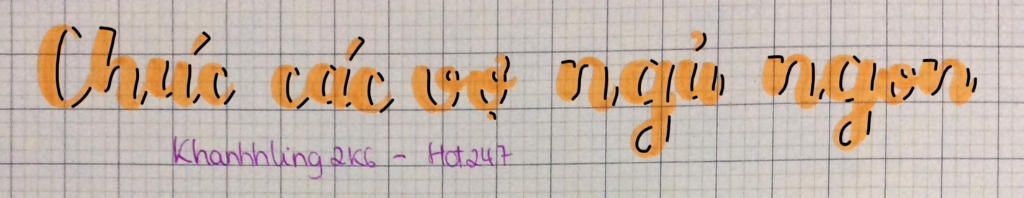 Chúc các vợ ngủ ngon
Khanhhling 2K6 - Hot247